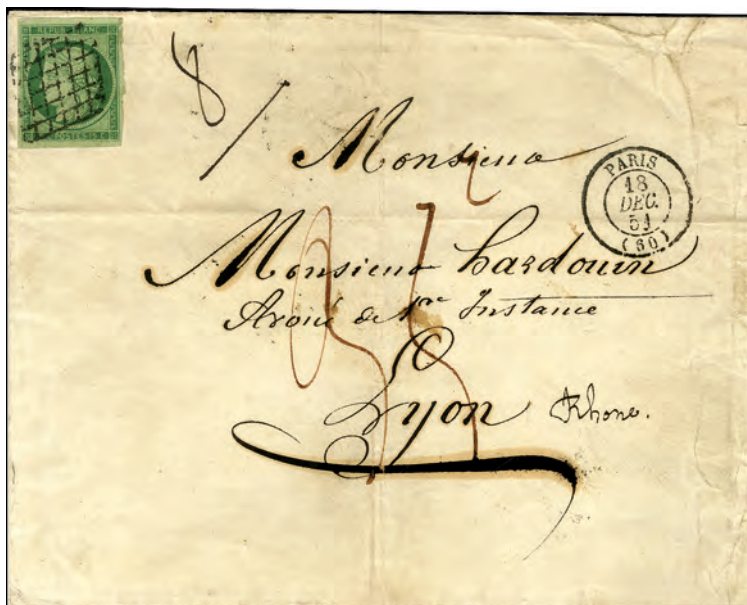 REPUB. FRANC
POSTES 15 C
8
Monsieur
PARIS
18
DEC.
51
(60)
Monsieur Hardouin
Avoué de 1re Instance
Lyon Rhone.